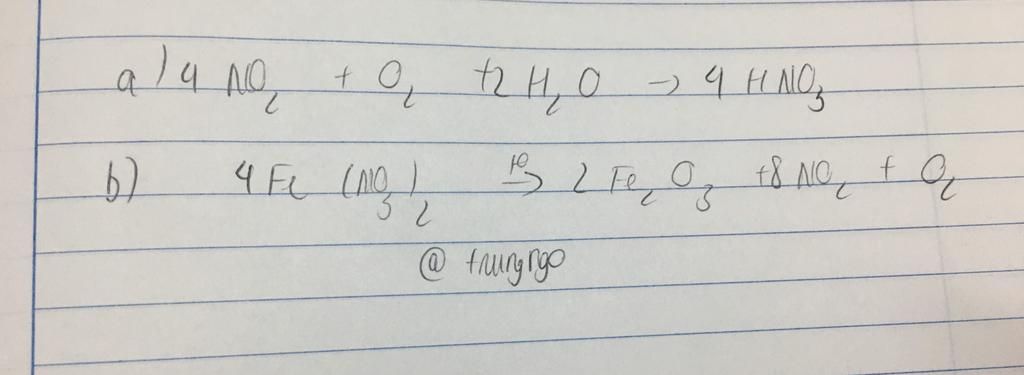 a) 4 NO₂ + O₂ + 2 H₂O → 4 HNO₃
b) 4 Fe (NO₃)₂ t⁰→ 2 Fe₂O₃ + 8 NO₂ + O₂
@ trungngo